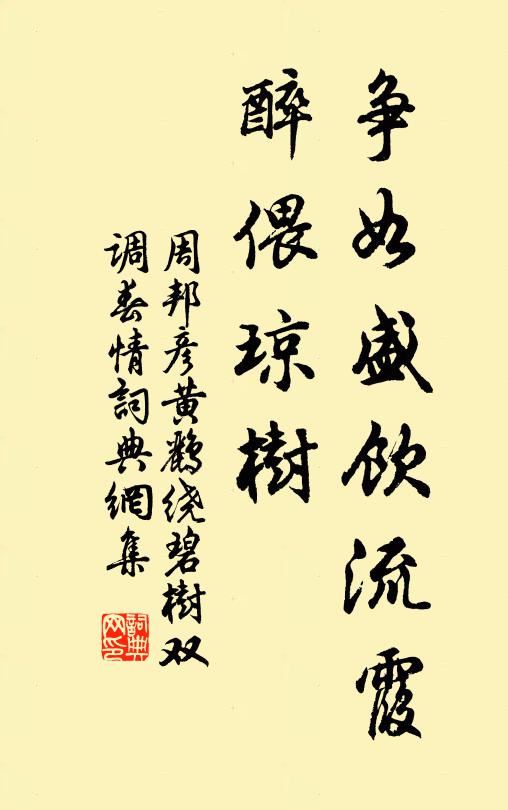 争如盛饮流霞
醉偎琼樹
周邦彦黄鹂绕碧樹双
调春情詞典網集
詞典
网印